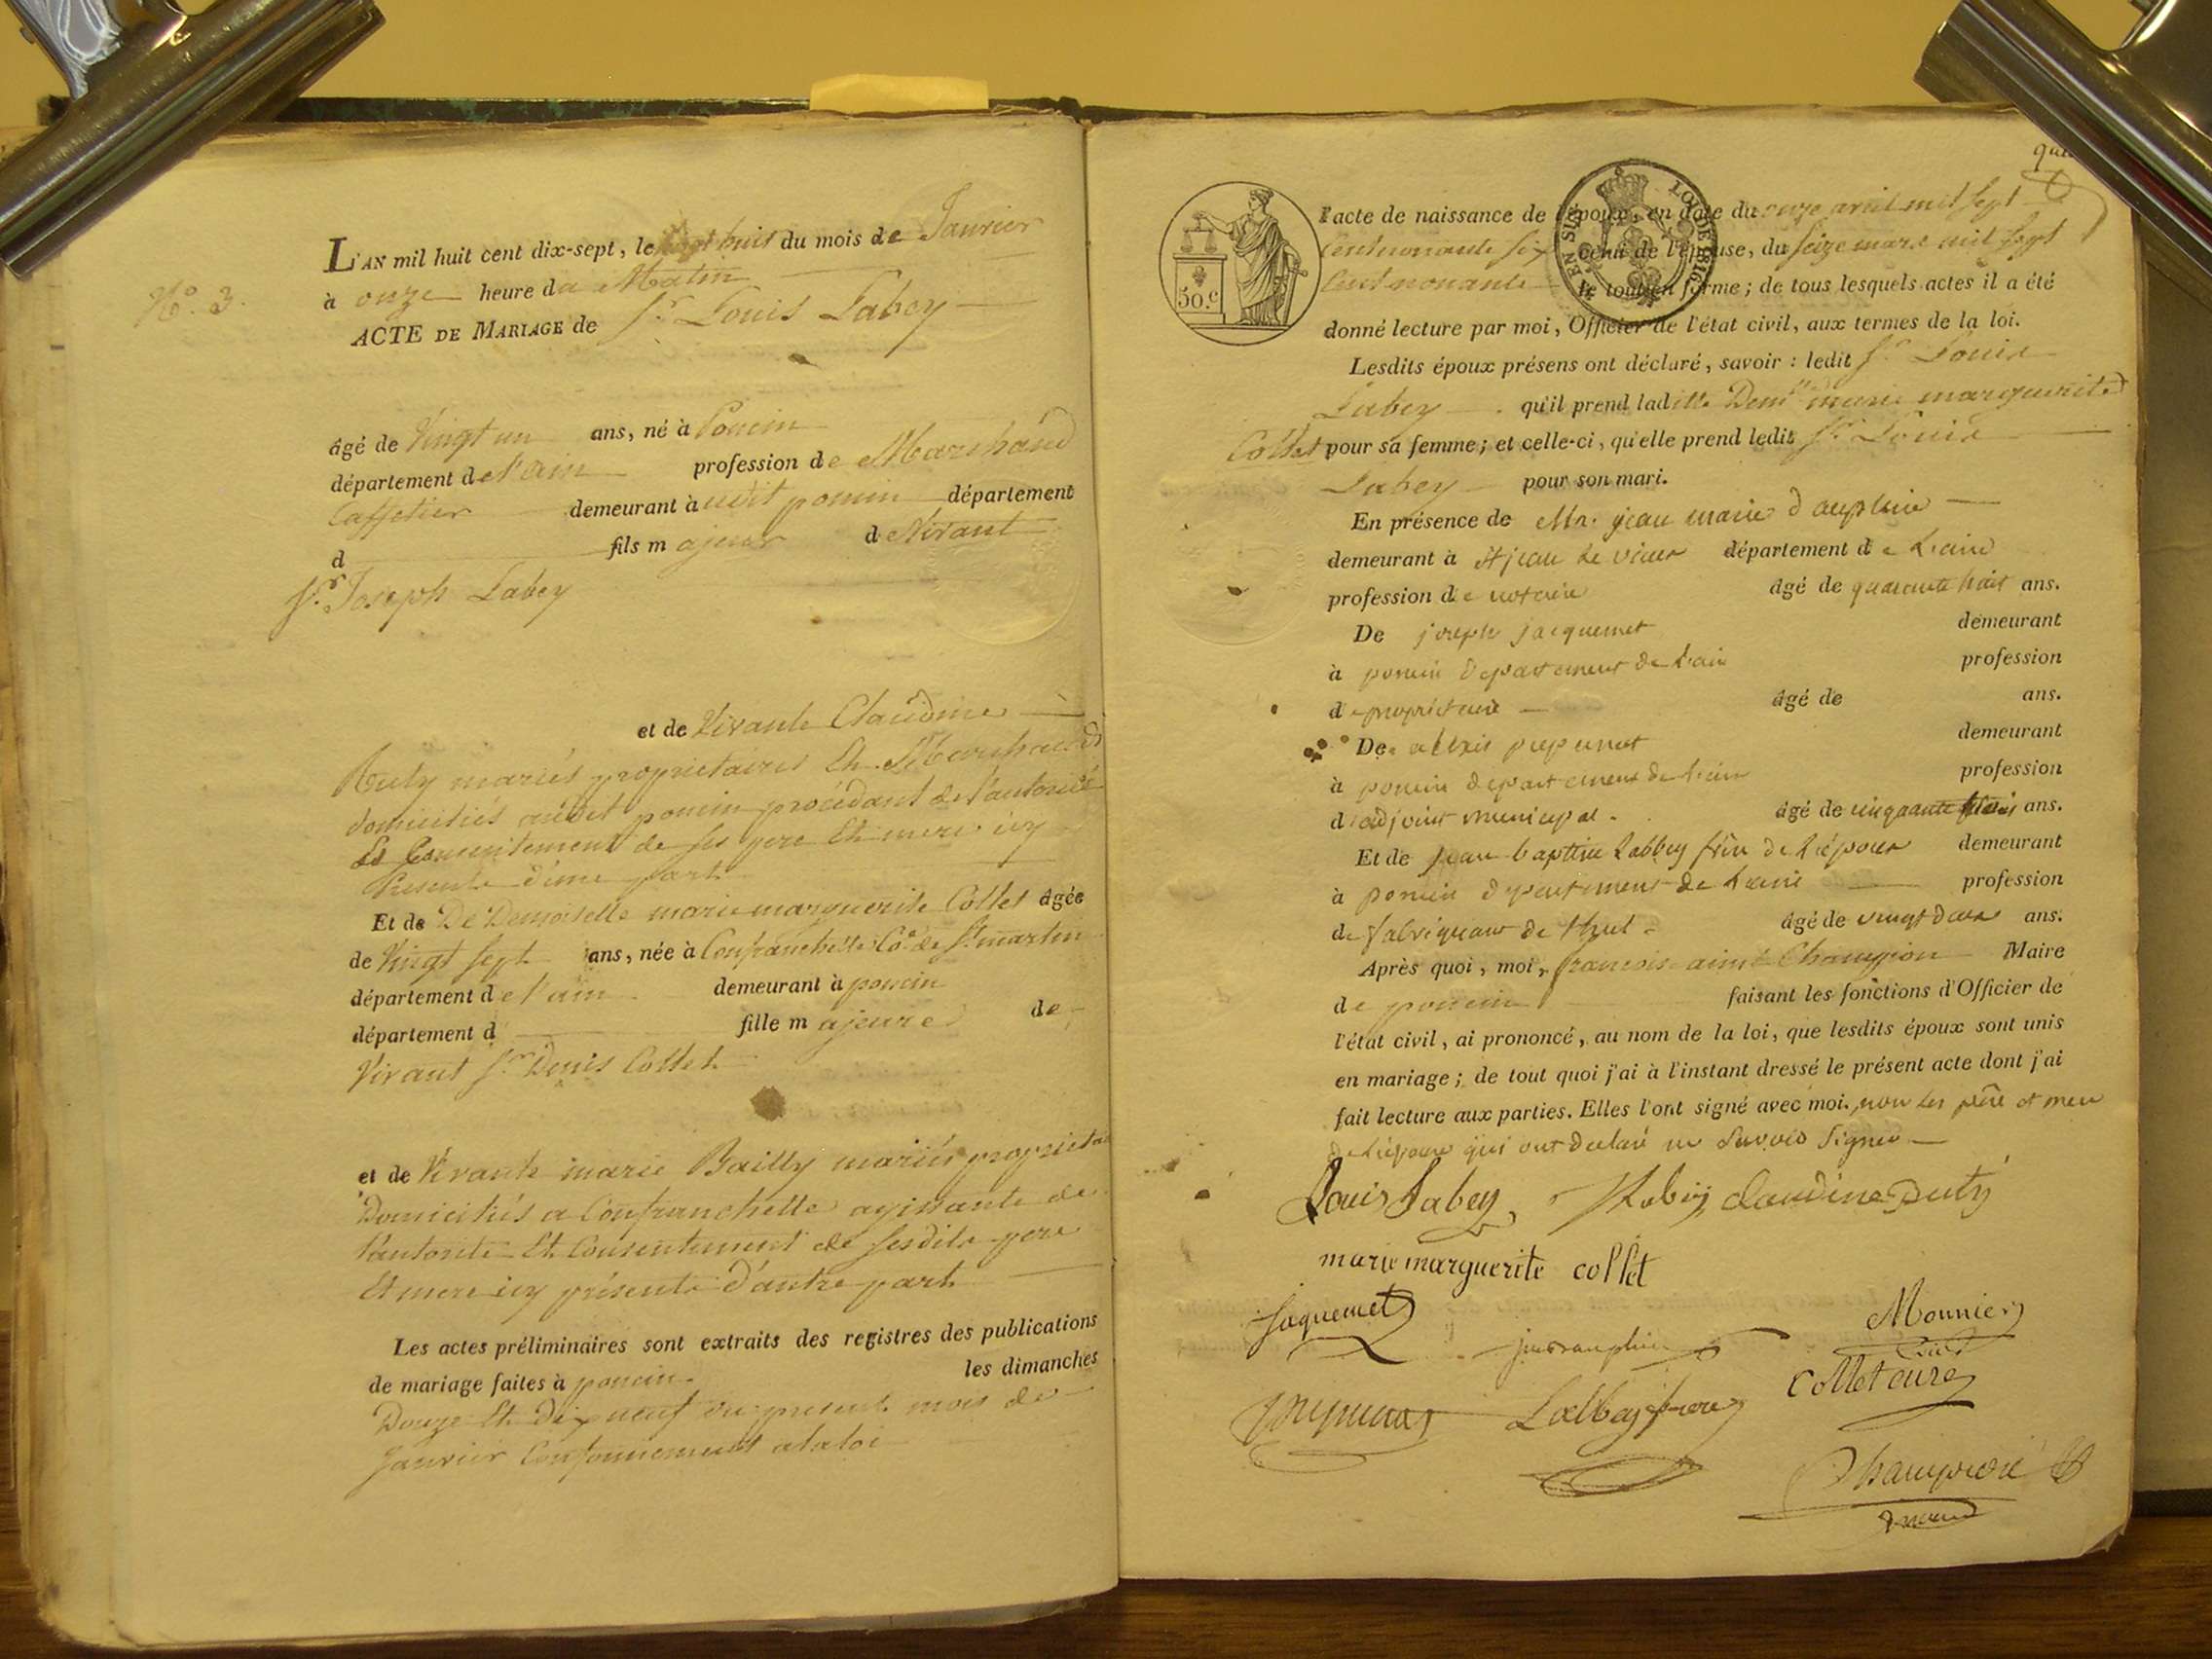 N.o 3.
L'AN mil huit cent dix-sept, le vingt huit du mois de Janvier
à onze heure du Matin
ACTE DE MARIAGE de Sr. Louis Labey
âgé de Vingt un ans, né à Poncin
département de l'ain profession de Marchand
Caffetier demeurant à udit poncin département
d fils majeur de Vivant
Sr. Joseph Labey
et de Vivante Claudine
Puty mariés proprietaires Et Marchands
domiciliés audit poncin procédant de l'autorité
Et Consentement de ses pere Et mere icy
Presents d'une part
Et de De Demoiselle marie marguerite Collet âgée
de Vingt sept ans, née à Confranchette Co.e de St. martin
département de l'ain demeurant à poncin
département d fille majeure de
Vivant Sr. Denis Collet
et de Vivante marie Bailly mariés proprieta
Domiciliés a Confranchette agissante de
l'autorité Et Consentement de sesdits pere
Et mere icy présents d'autre part
Les actes préliminaires sont extraits des registres des publications
de mariage faites à poncin les dimanches
Douze Et Dix neuf du present mois de
Janvier Conformement a la loi
50.c
EN SUS LOI DE 1816
l'acte de naissance de l'époux, en date du onze avril mil sept
Cent nonante six celui de l'épouse, du seize mars mil sept
Cent nonante le tout en forme; de tous lesquels actes il a été
donné lecture par moi, Officier de l'état civil, aux termes de la loi.
Lesdits époux présens ont déclaré, savoir : ledit Sr. Louis
Labey qu'il prend ladite Demlle marie marguerite
Collet pour sa femme; et celle-ci, qu'elle prend ledit Sr. Louis
Labey pour son mari.
En présence de Mr. jean marie dauphin
demeurant à St jean le vieux département de L'ain
profession de notaire âgé de quarante huit ans.
De joseph jacquemet demeurant
à poncin departement de L'ain profession
de propriétaire âgé de ans.
De alexis demeurant
à poncin departement de L'ain profession
d'adjoint municipal. âgé de cinquante ans.
Et de jean baptiste Labbey frère de L'époux demeurant
à poncin departement de L'ain profession
de fabriquant de thul âgé de vingt deux ans.
Après quoi, moi, francois aimé Champion Maire
de poncin faisant les fonctions d'Officier de
l'état civil, ai prononcé, au nom de la loi, que lesdits époux sont unis
en mariage; de tout quoi j'ai à l'instant dressé le présent acte dont j'ai
fait lecture aux parties. Elles l'ont signé avec moi. non les père et mere
de L'épouse qui ont declaré ne Savoir Signer
Louis Labey Labey Claudine Puty
marie marguerite collet
Jaquemet jm dauphin Monnier
Labbey frere Collet curé
Champion